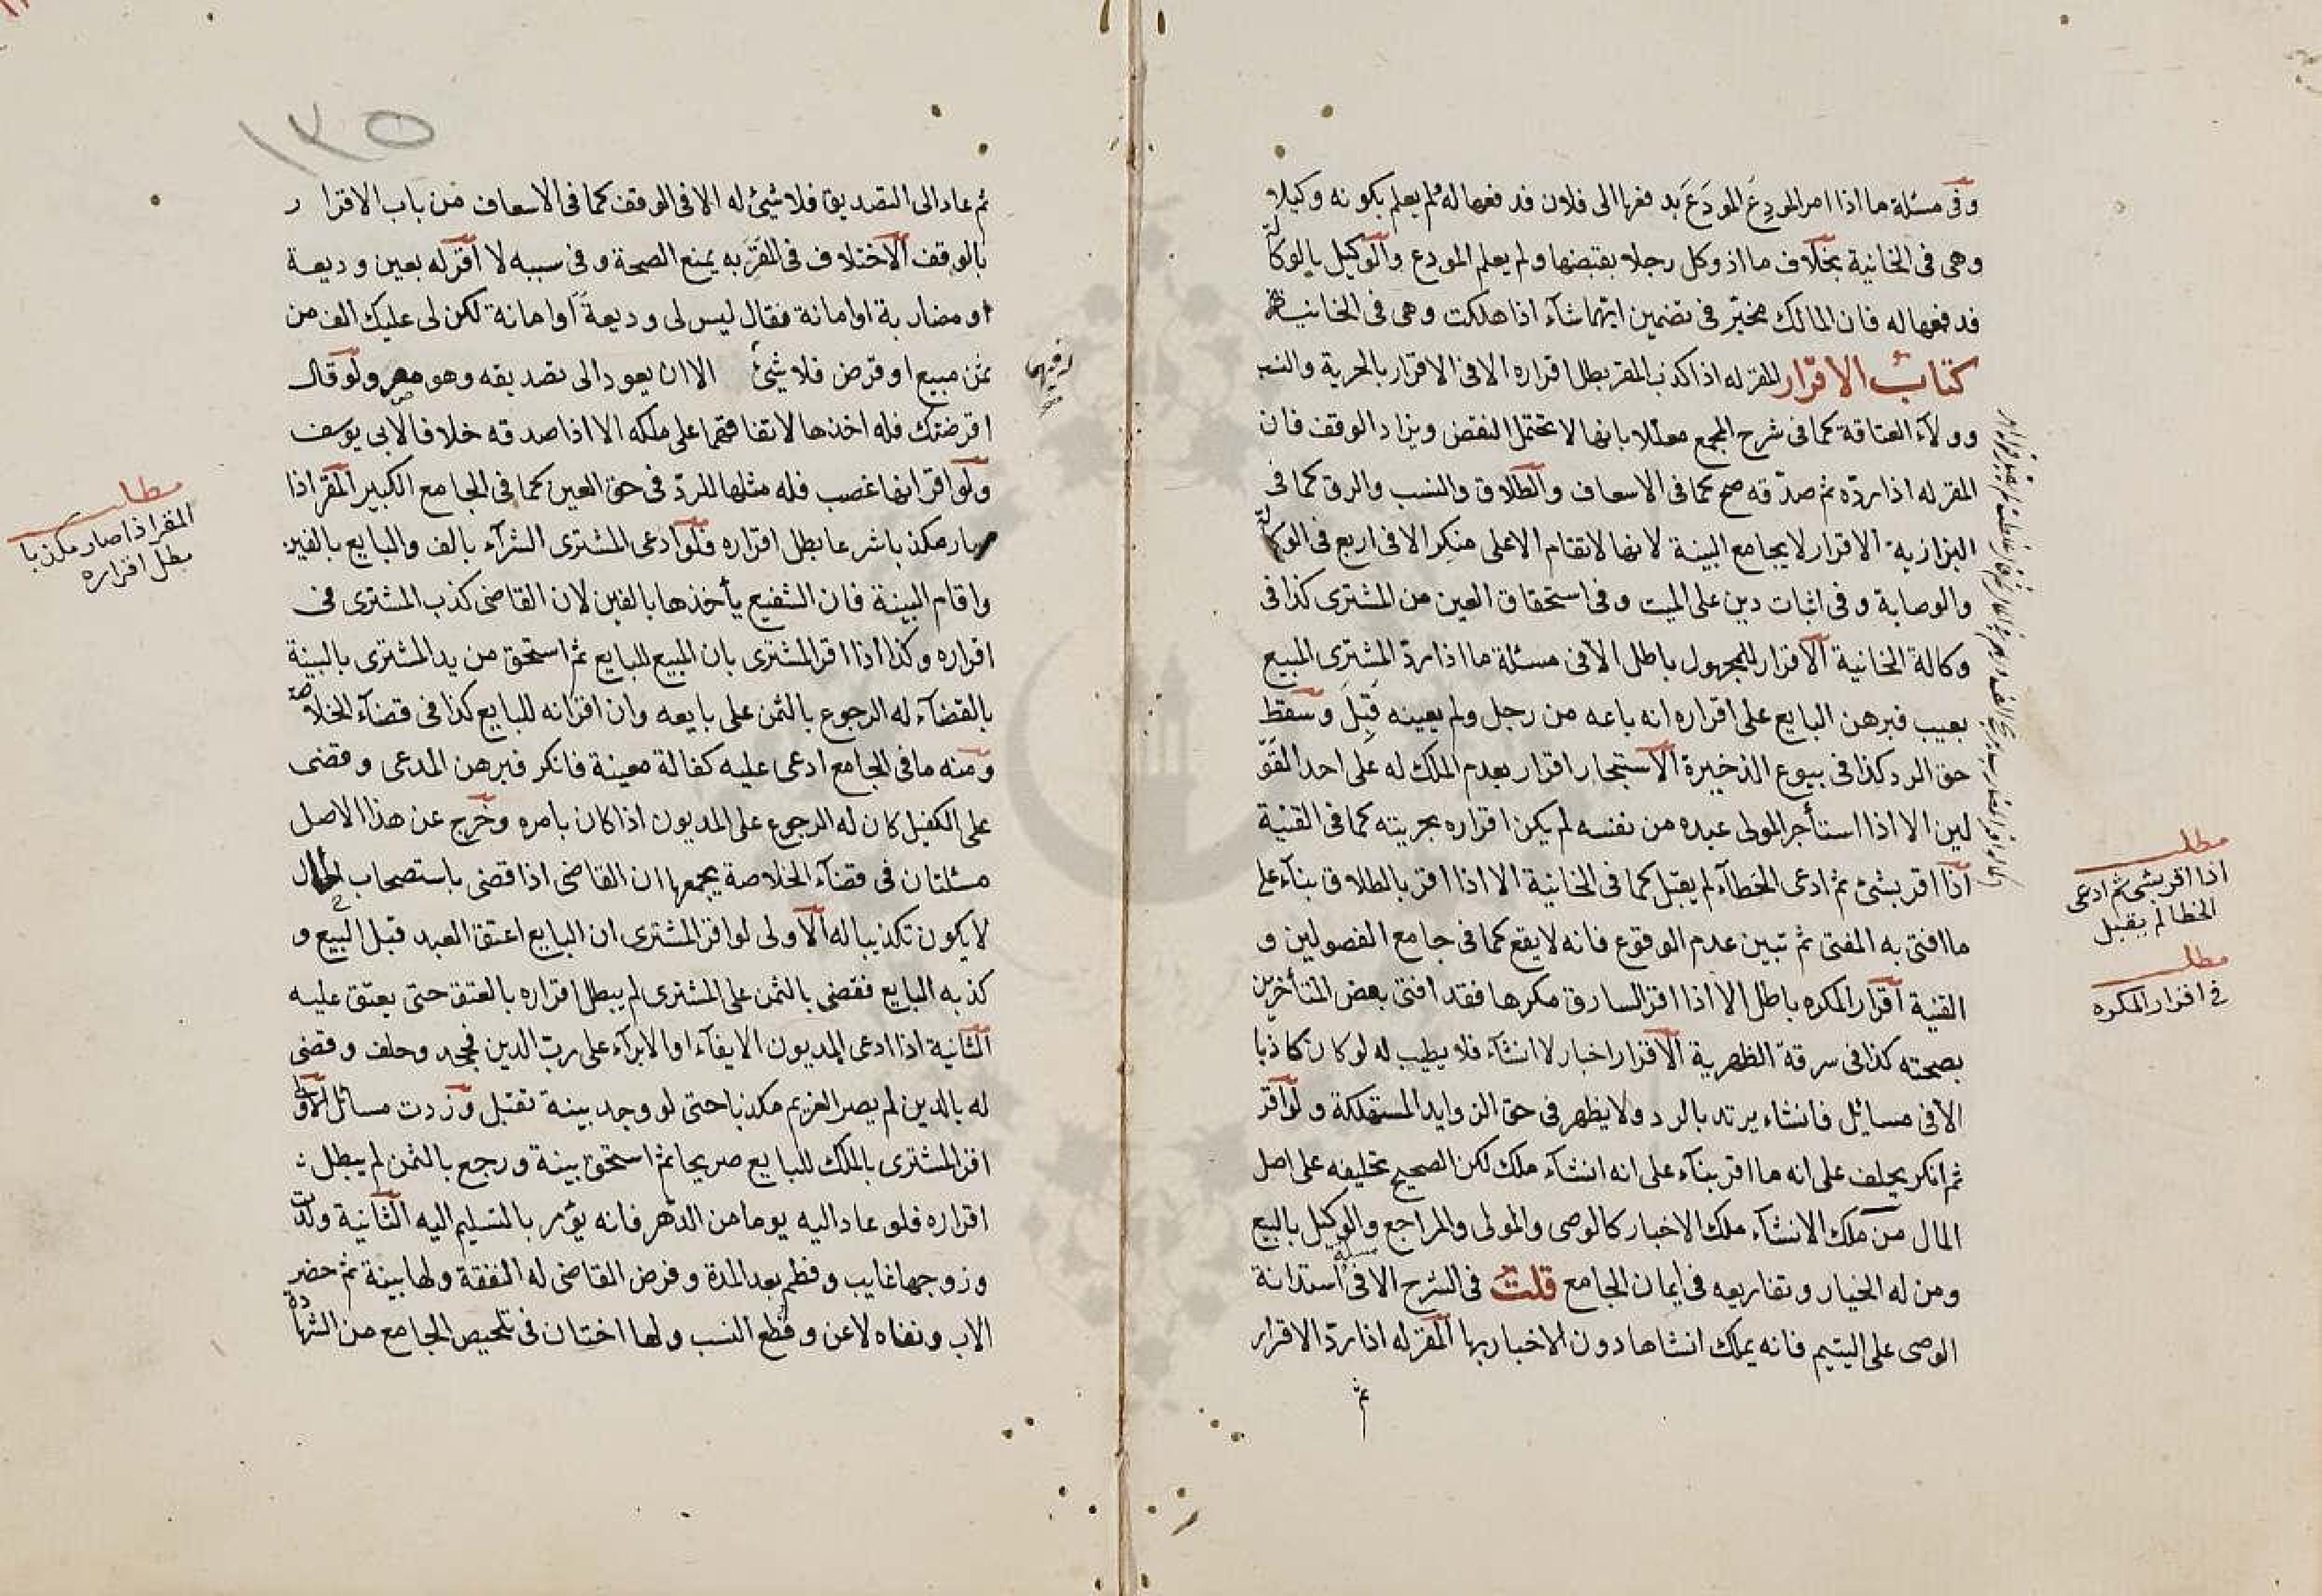 وفى مسئلة ما اذا امر المودِع المودَع بدفعها الى فلان فدفعها له ولم يعلم بكونه وكيلا
وهى فى الخانية بخلاف ما اذ وكل رجلا بقبضها ولم يعلم المودع والوكيل بالوكالة
فدفعها له فان المالك مخير فى تضمين ايهما شآء اذا هلكت وهى فى الخانية
كتاب الاقرار المقر له اذا كذب المقر بطل اقراره الا فى الاقرار بالحرية والنسب
وولآء العتاقة كما فى شرح المجمع معللا بانها لا تحتمل النقض ويزاد الوقف فان
المقر له اذا رده ثم صدقه صح كما فى الاسعاف والطلاق والنسب والرق كما فى
البزازية الاقرار لا يجامع البينة لانها لا تقام الا على منكر الا فى اربع فى الوكالة
والوصاية وفى اثبات دين على الميت وفى استحقاق العين من المشترى كذا فى
وكالة الخانية الاقرار للمجهول باطل الا فى مسئلة ما اذا رد المشترى المبيع
بعيب فبرهن البايع على اقراره انه باعه من رجل ولم يعينه قبل وسقط
حق الرد كذا فى بيوع الذخيرة الاستيجار اقرار بعدم الملك له على احد القو
لين الا اذا استأجر المولى عبده من نفسه لم يكن اقراره بحريته كما فى القنية
اذا اقر بشئ ثم ادعى الخطآء لم يقبل كما فى الخانية الا اذا اقر بالطلاق بنآء على
ما افتى به المفتى ثم تبين عدم الوقوع فانه لا يقع كما فى جامع الفصولين و
القنية اقرار المكره باطل الا اذا اقر السارق مكرها فقد افتى بعض المتأخرين
بصحته كذا فى سرقة الظهرية الاقرار اخبار لا انشآء فلا يطيب له لو كان كاذبا
الا فى مسائل فانشاء يرتد بالرد ولا يظهر فى حق الزوايد المستهلكة ولو اقر
ثم انكر يحلف على انه ما اقر بنآء على انه انشآء ملك لكن الصحيح تحليفه على اصل
المال من ملك الانشآء ملك الاخبار كالوصى والمولى والمراجع والوكيل بالبيع
ومن له الخيار وتفاريعه فى ايمان الجامع قلت فى الشرح الا فى مسئلة استدانة
الوصى على اليتيم فانه يملك انشاها دون الاخبار بها المقر له اذا رد الاقرار
ثم
مطلب
اذا اقر بشئ ثم ادعى
الخطا لم يقبل
مطلب
فى اقرار المكره
١٣٥
ثم عاد الى التصديق فلا شئ له الا فى الوقف كما فى الاسعاف من باب الاقرار
بالوقف الاختلاف فى المقر به يمنع الصحة وفى سببه لا اقر له بعين وديعة
او مضاربة او امانة فقال ليس لى وديعة او امانة لكن لى عليك الف من
ثمن مبيع او قرض فلا شئ الا ان يعود الى تصديقه وهو مصر ولو قال
اقرضتك فله اخذها لاتفاقهما على ملكه الا اذا صدقه خلافا لابى يوسف
ولو اقر انها غصب فله مثلها للرد فى حق العين كما فى الجامع الكبير المقر اذا
صار مكذبا شرعا بطل اقراره فلو ادعى المشترى الشرآء بالف والبايع بالفين
واقام البينة فان الشفيع يأخذها بالفين لان القاضى كذب المشترى فى
اقراره وكذا اذا اقر المشترى بان المبيع للبايع ثم استحق من يد المشترى بالبينة
بالقضآء له الرجوع بالثمن على بايعه وان اقر انه للبايع كذا فى قضآء الخلاصة
ومنه ما فى الجامع ادعى عليه كفالة معينة فانكر فبرهن المدعى وقضى
على الكفيل كان له الرجوع على المديون اذا كان بامره وخرج عن هذا الاصل
مسئلتان فى قضآء الخلاصة يجمعها ان القاضى اذا قضى باستصحاب الحال
لا يكون تكذيبا له الاولى لو اقر المشترى ان البايع اعتق العبد قبل البيع و
كذبه البايع فقضى بالثمن على المشترى لم يبطل اقراره بالعتق حتى يعتق عليه
الثانية اذا ادعى المديون الايفآء او الابرآء على رب الدين فجحد وحلف وقضى
له بالدين لم يصر الغريم مكذبا حتى لو وجد بينة تقبل وزدت مسائل الاولى
اقر المشترى بالملك للبايع صريحا ثم استحق ببينة ورجع بالثمن لم يبطل
اقراره فلو عاد اليه يوما من الدهر فانه يؤمر بالتسليم اليه الثانية ولدت
وزوجها غايب وفطم بعد المدة وفرض القاضى له النفقة ولها بينة ثم حضر
الاب ونفاه لاعن وقطع النسب ولها اختان فى تلخيص الجامع من الشهادة
مطلب
المقر اذا صار مكذبا
بطل اقراره